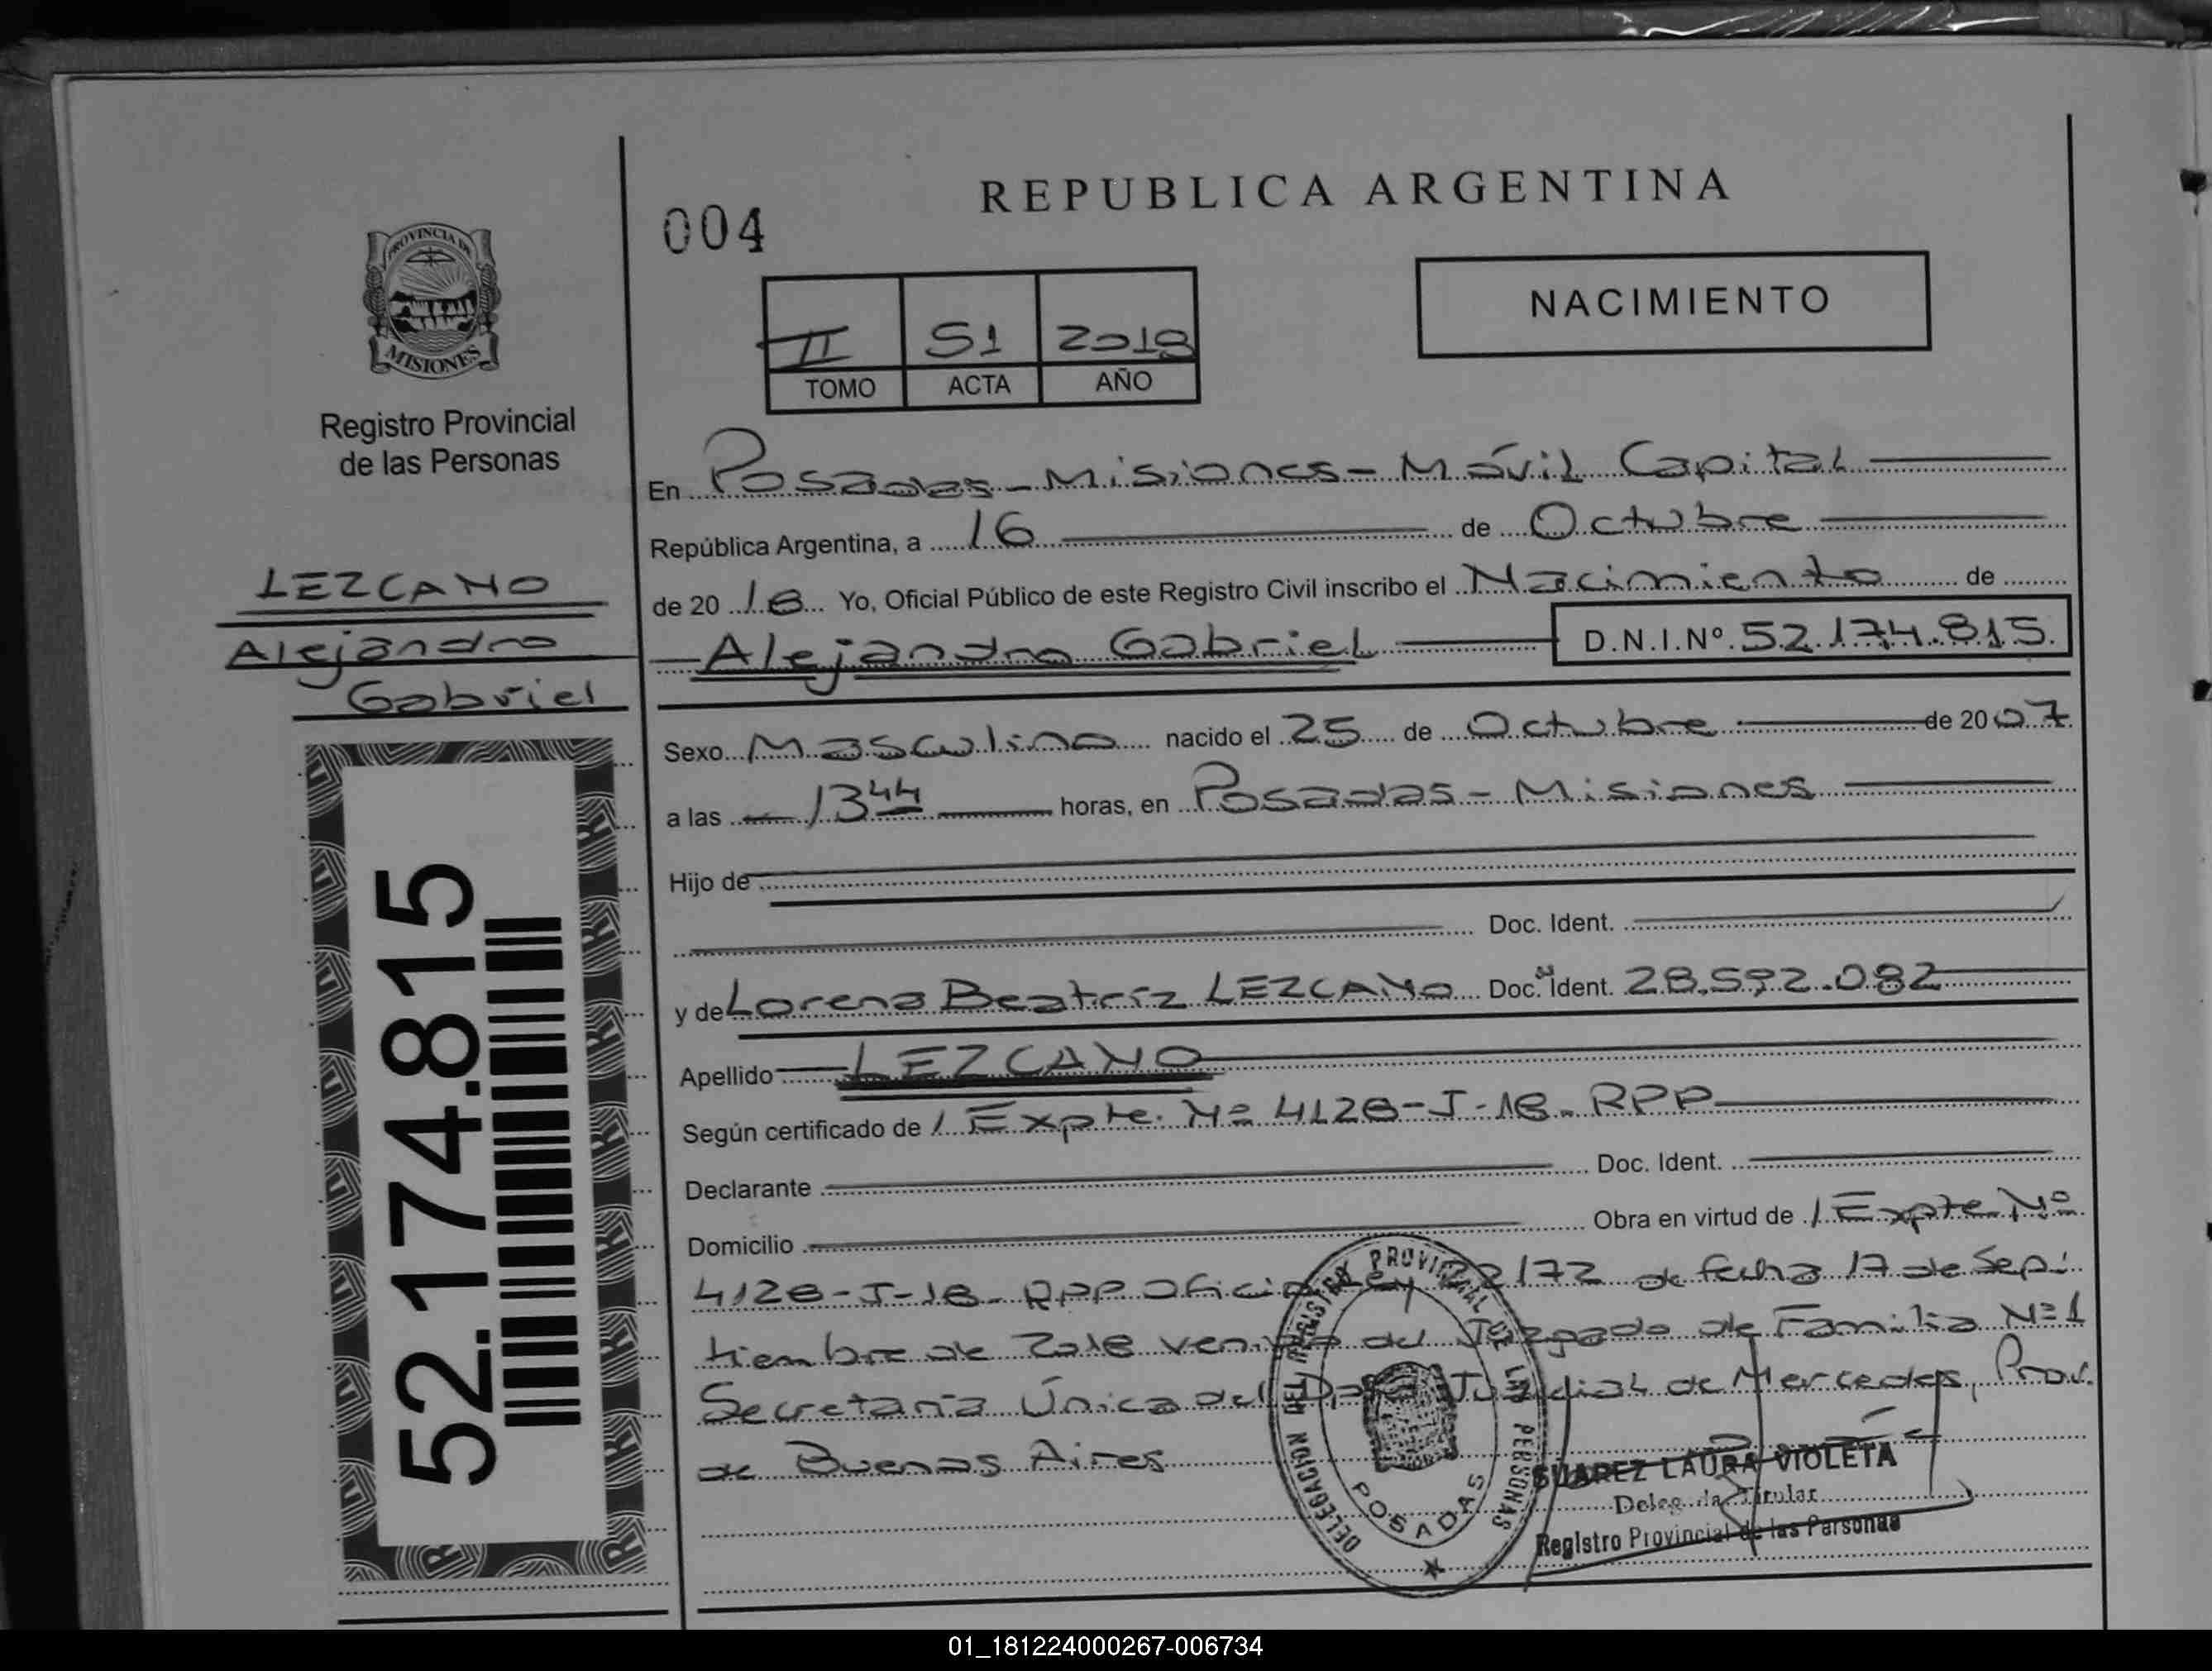 REPUBLICA ARGENTINA
004
NACIMIENTO
II 51 2018
TOMO ACTA AÑO
PROVINCIA DE
MISIONES
Registro Provincial
de las Personas
LEZCANO
Alejandro
Gabriel
52.174.815
En Posadas - Misiones - Móvil Capital
República Argentina, a 16 de Octubre
de 2018 Yo, Oficial Público de este Registro Civil inscribo el Nacimiento de
Alejandro Gabriel D.N.I.Nº 52.174.815.
Sexo Masculino nacido el 25 de Octubre de 2007
a las 13 44 horas, en Posadas - Misiones
Hijo de
Doc. Ident.
y de Lorena Beatríz LEZCANO Doc. Ident. 28.592.082
Apellido LEZCANO
Según certificado de / Expte. Nº 4128-J-18- RPP
Declarante Doc. Ident.
Domicilio Obra en virtud de / Expte Nº
4128-J-18- RPP Oficio Ley 22172 de fecha 17 de Sep-
tiembre de 2018 venido del Juzgado de Familia Nº 1
Secretaría Única del Judicial de Mercedes, Prov.
de Buenos Aires
DELEGACION DEL REGISTRO PROVINCIAL DE LAS PERSONAS
POSADAS
SUAREZ LAURA VIOLETA
Delegada Titular
Registro Provincial de las Personas
01_181224000267-006734